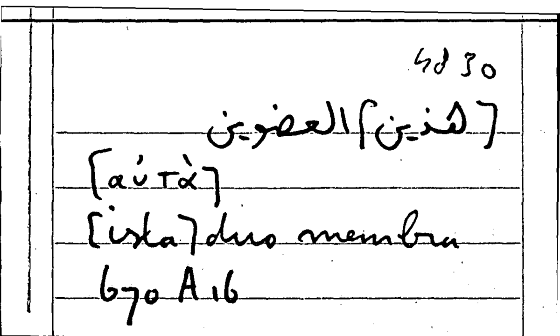 4830
[هذين] العضوين
[αὐτὰ]
[ista] duo membra
670 A 16